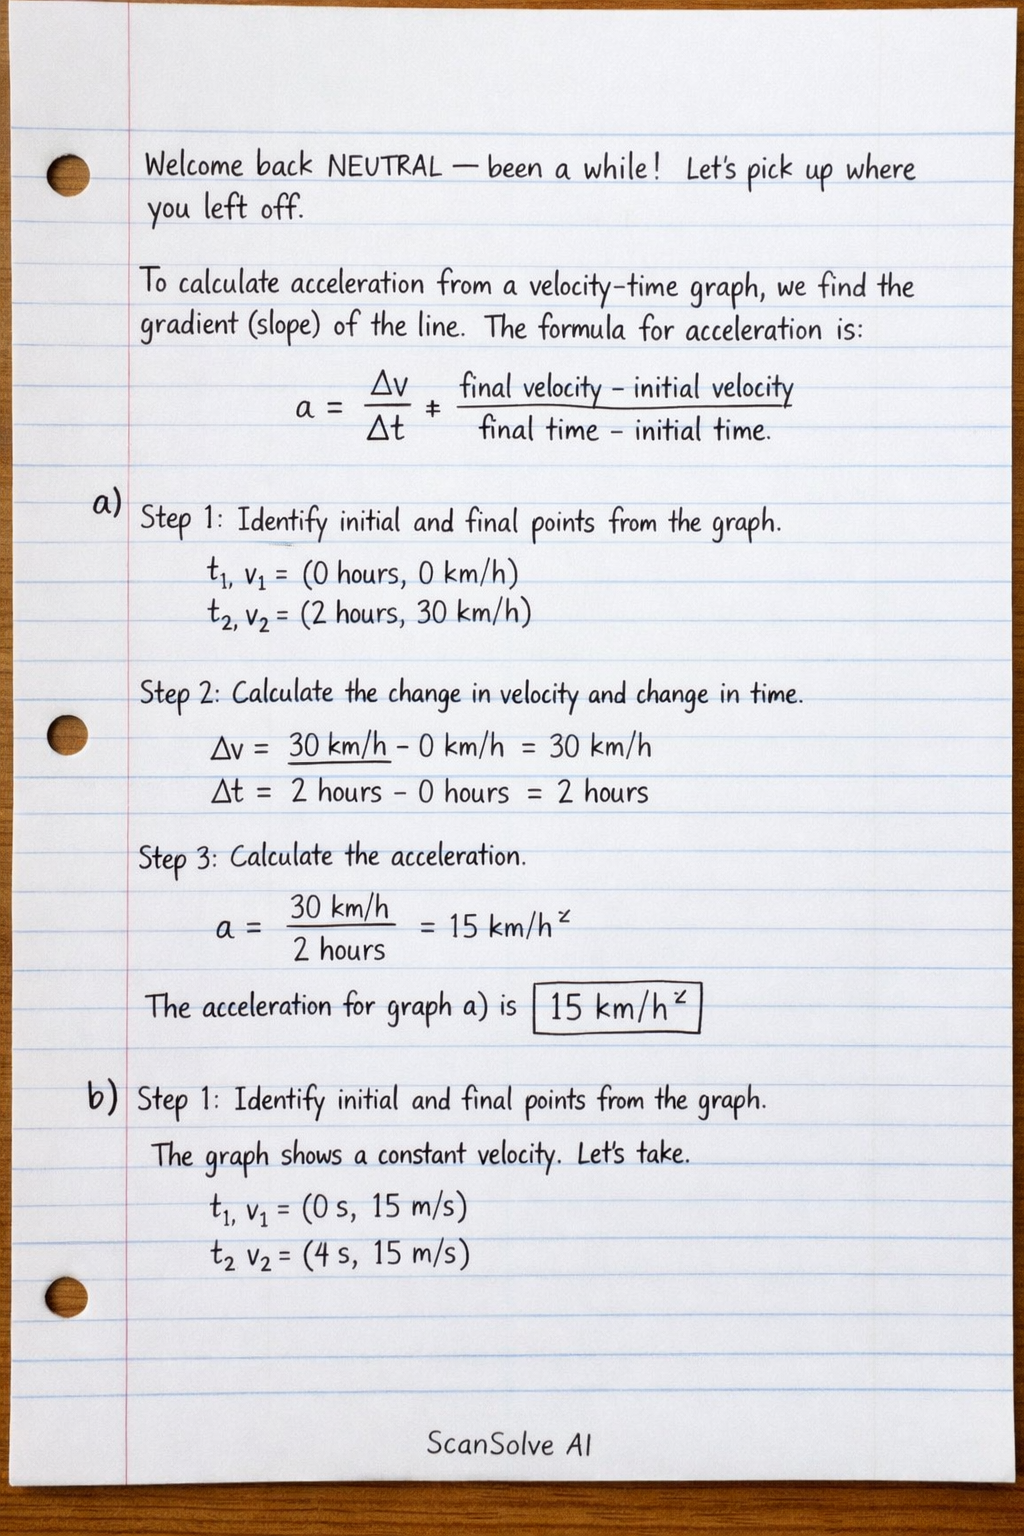 Welcome back NEUTRAL — been a while! Let's pick up where
you left off.
To calculate acceleration from a velocity-time graph, we find the
gradient (slope) of the line. The formula for acceleration is:
a = Δv/Δt ≠ final velocity – initial velocity / final time – initial time.
a) Step 1: Identify initial and final points from the graph.
t₁, v₁ = (0 hours, 0 km/h)
t₂, v₂ = (2 hours, 30 km/h)
Step 2: Calculate the change in velocity and change in time.
Δv = 30 km/h – 0 km/h = 30 km/h
Δt = 2 hours – 0 hours = 2 hours
Step 3: Calculate the acceleration.
a = 30 km/h / 2 hours = 15 km/h²
The acceleration for graph a) is 15 km/h²
b) Step 1: Identify initial and final points from the graph.
The graph shows a constant velocity. Let's take.
t₁, v₁ = (0 s, 15 m/s)
t₂ v₂ = (4 s, 15 m/s)
ScanSolve AI